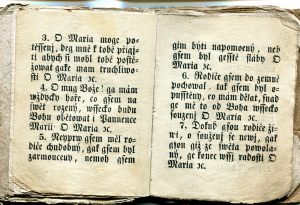 3. O Maria moge po-
těssenj, deg mně k tobě přigj-
ti abych ſi mohl tobě poſtě-
žowat gaké mam truchliwo-
ſti O Maria ꝛc.
4. O mug Bože! ga mám
wždycky hoře, co gſem na
ſwět rozený, wſſecko budu
Bohu obětowat i Pannence
Marii O Maria ꝛc.
5. Neyprw gſem měl ro-
diče chudobny, gak gſem byl
zarmoucený, nemoh gſem
gim býti napomocný, neb
gſem byl geſſtě ſláby O
Maria ꝛc.
6. Rodiče gſem do země
pochoval, tak gſem byl o-
puſſtěny, co mám dělat, ſnad
ge mě to od Boha wſſecko
ſouzený O Maria ꝛc.
7. Dokud gſau rodiče ži-
wi, o ſouženj ſe newj, gak
gſau giž ze ſwěta powola-
ny, ge konec wſſj radoſti O
Maria ꝛc.